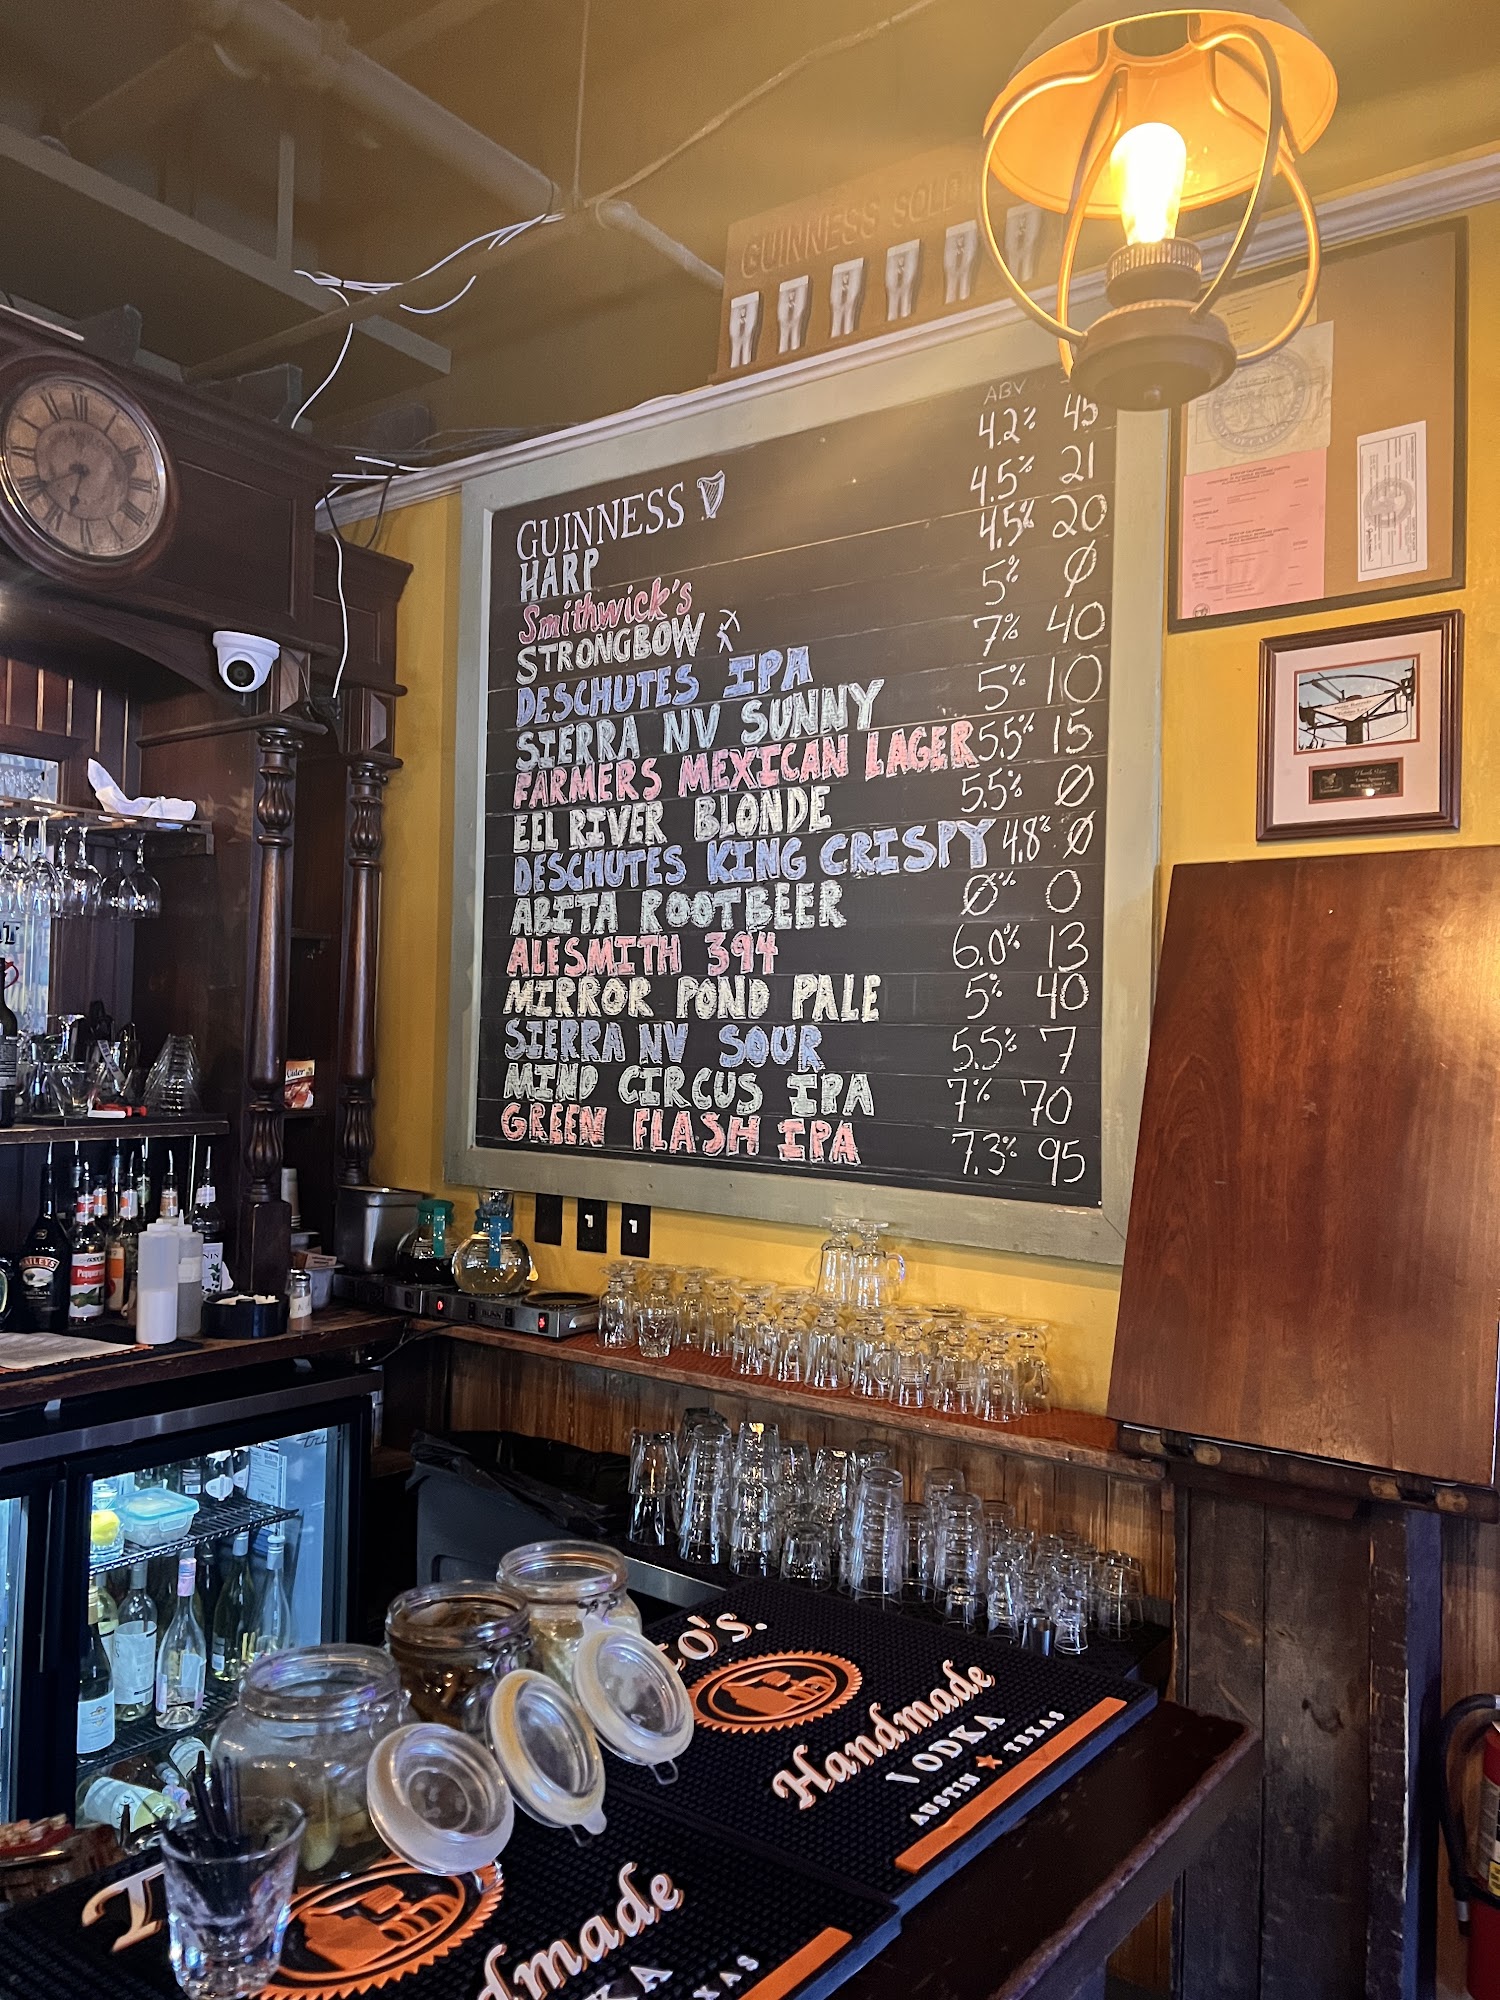 GUINNESS SOLD
ABV
GUINNESS 4.2% 45
HARP 4.5% 21
Smithwick's 4.5% 20
STRONGBOW 5% Ø
DESCHUTES IPA 7% 40
SIERRA NV SUNNY 5% 10
FARMERS MEXICAN LAGER 5.5% 15
EEL RIVER BLONDE 5.5% Ø
DESCHUTES KING CRISPY 4.8% Ø
ABITA ROOTBEER Ø% 0
ALESMITH 394 6.0% 13
MIRROR POND PALE 5% 40
SIERRA NV SOUR 5.5% 7
MIND CIRCUS IPA 7% 70
GREEN FLASH IPA 7.3% 95
Cider
BAILEYS
to's.
Handmade
VODKA
AUSTIN ★ TEXAS